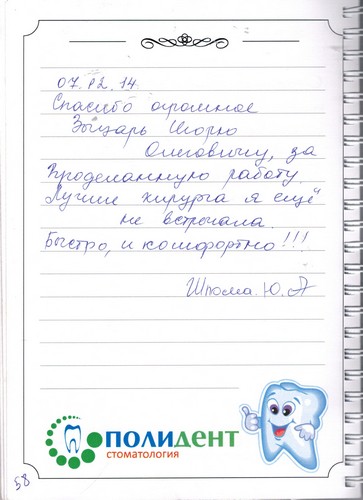 07.02.14.
Спасибо огромное
Зыцарь Игорю
Олеговичу, за
Проделанную работу.
Лучше хирурга я ещё
не встречала.
Быстро, и комфортно!!!
Шлома. Ю. А
ПОЛИДЕНТ
СТОМАТОЛОГИЯ
58